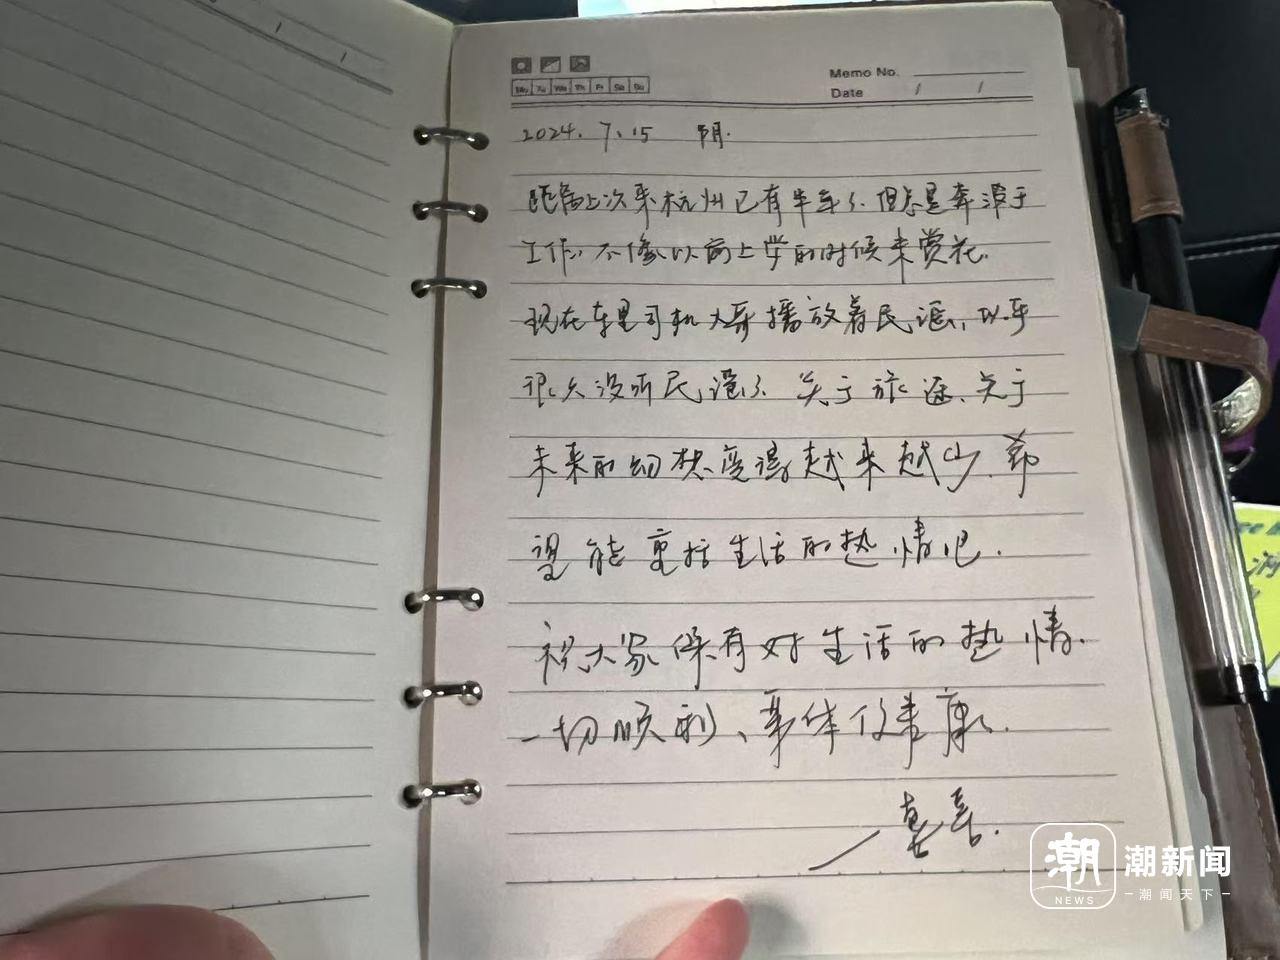 Memo No.
Mo Tu We Th Fr Sa Su
Date / /
2024. 7. 15 阴.
距离上次来杭州已有半年了.但总是奔波于
工作,不像以前上学的时候来赏花.
现在车里司机大哥播放着民谣,似乎
很久没听民谣了.关于旅途、关于
未来的幻想变得越来越少.希
望能重拾生活的热情吧.
祝大家保有对生活的热情.
一切顺利、身体健康.
潮新闻
NEWS
潮闻天下